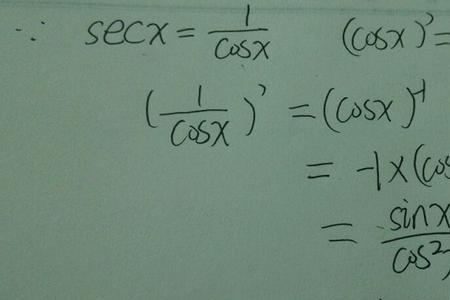 ∵ secx = 1/cosx (cosx)' =
(1/cosx)' = (cosx)^-1
= -1×(cos
= sinx/cos²